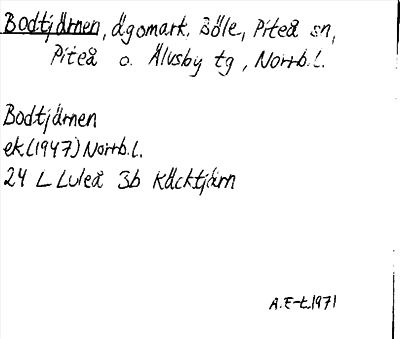 Bodtjärnen, ägomark, Böle, Piteå sn,
Piteå o. Älvsby tg, Norrb.l.
Bodtjärnen
ek (1947) Norrb.l.
24 L Luleå 3b Käcktjärn
A.E-t. 1971